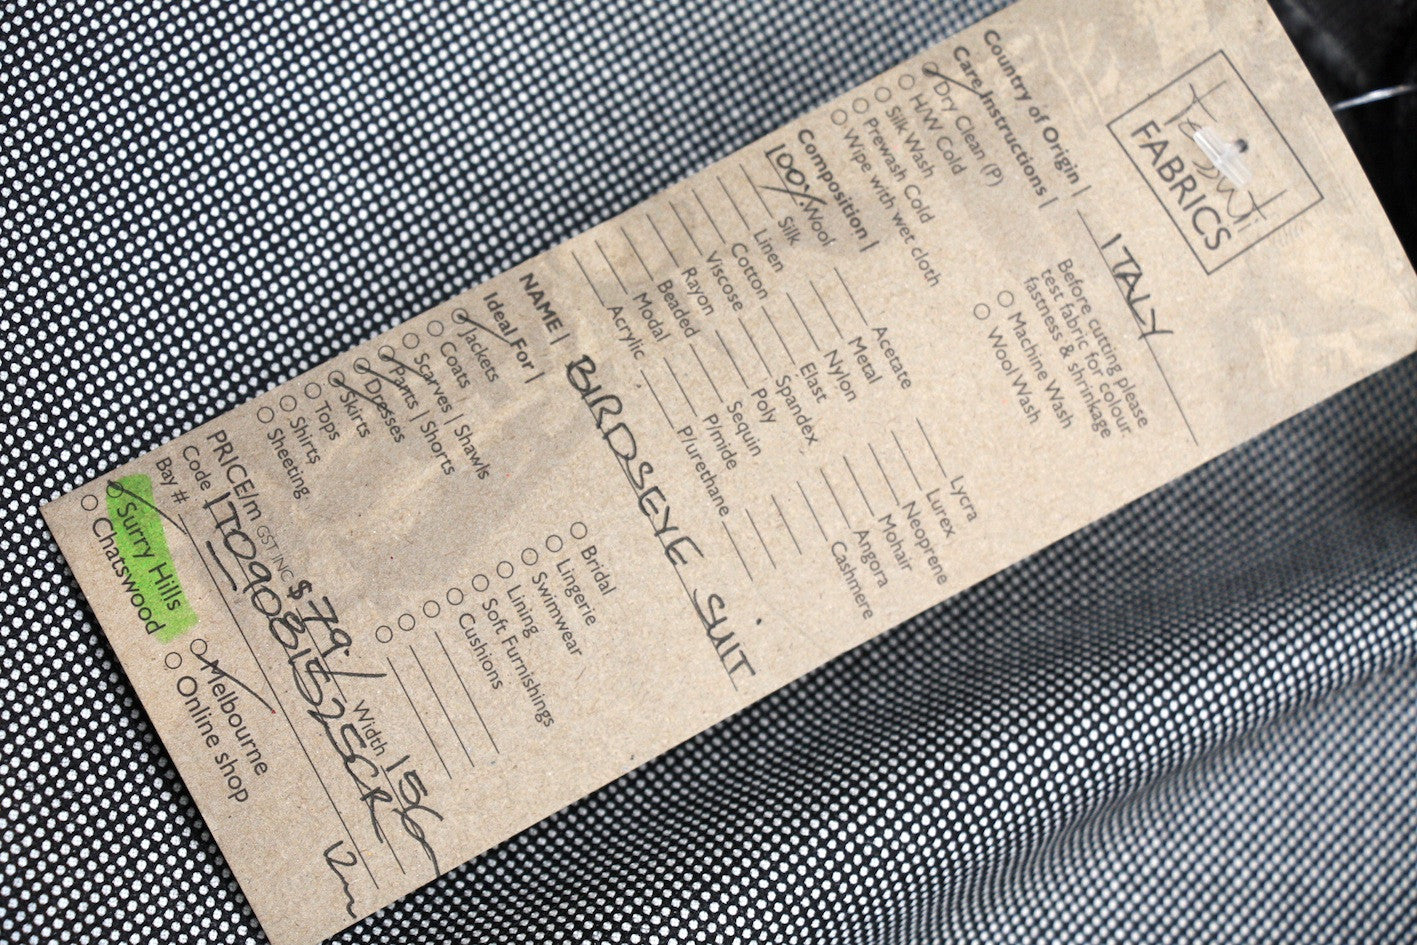 FABRICS
Country of Origin | ITALY
Care Instructions |
Dry Clean (P)
H/W Cold
Silk Wash
Prewash Cold
Wipe with wet cloth
Before cutting please
test fabric for colour
fastness & shrinkage
Machine Wash
Wool Wash
Composition |
100% Wool
Silk
Linen
Cotton
Viscose
Rayon
Beaded
Modal
Acrylic
Acetate
Metal
Nylon
Elast
Spandex
Poly
Sequin
P/mide
P/urethane
Lycra
Lurex
Neoprene
Mohair
Angora
Cashmere
NAME | BIRDSEYE SUIT
Ideal For |
Jackets
Coats
Scarves | Shawls
Pants | Shorts
Dresses
Skirts
Tops
Shirts
Sheeting
Bridal
Lingerie
Swimwear
Lining
Soft Furnishings
Cushions
PRICE/m GST INC $79/ Width 150
Code
Bay #
12m
Surry Hills
Chatswood
Melbourne
Online shop